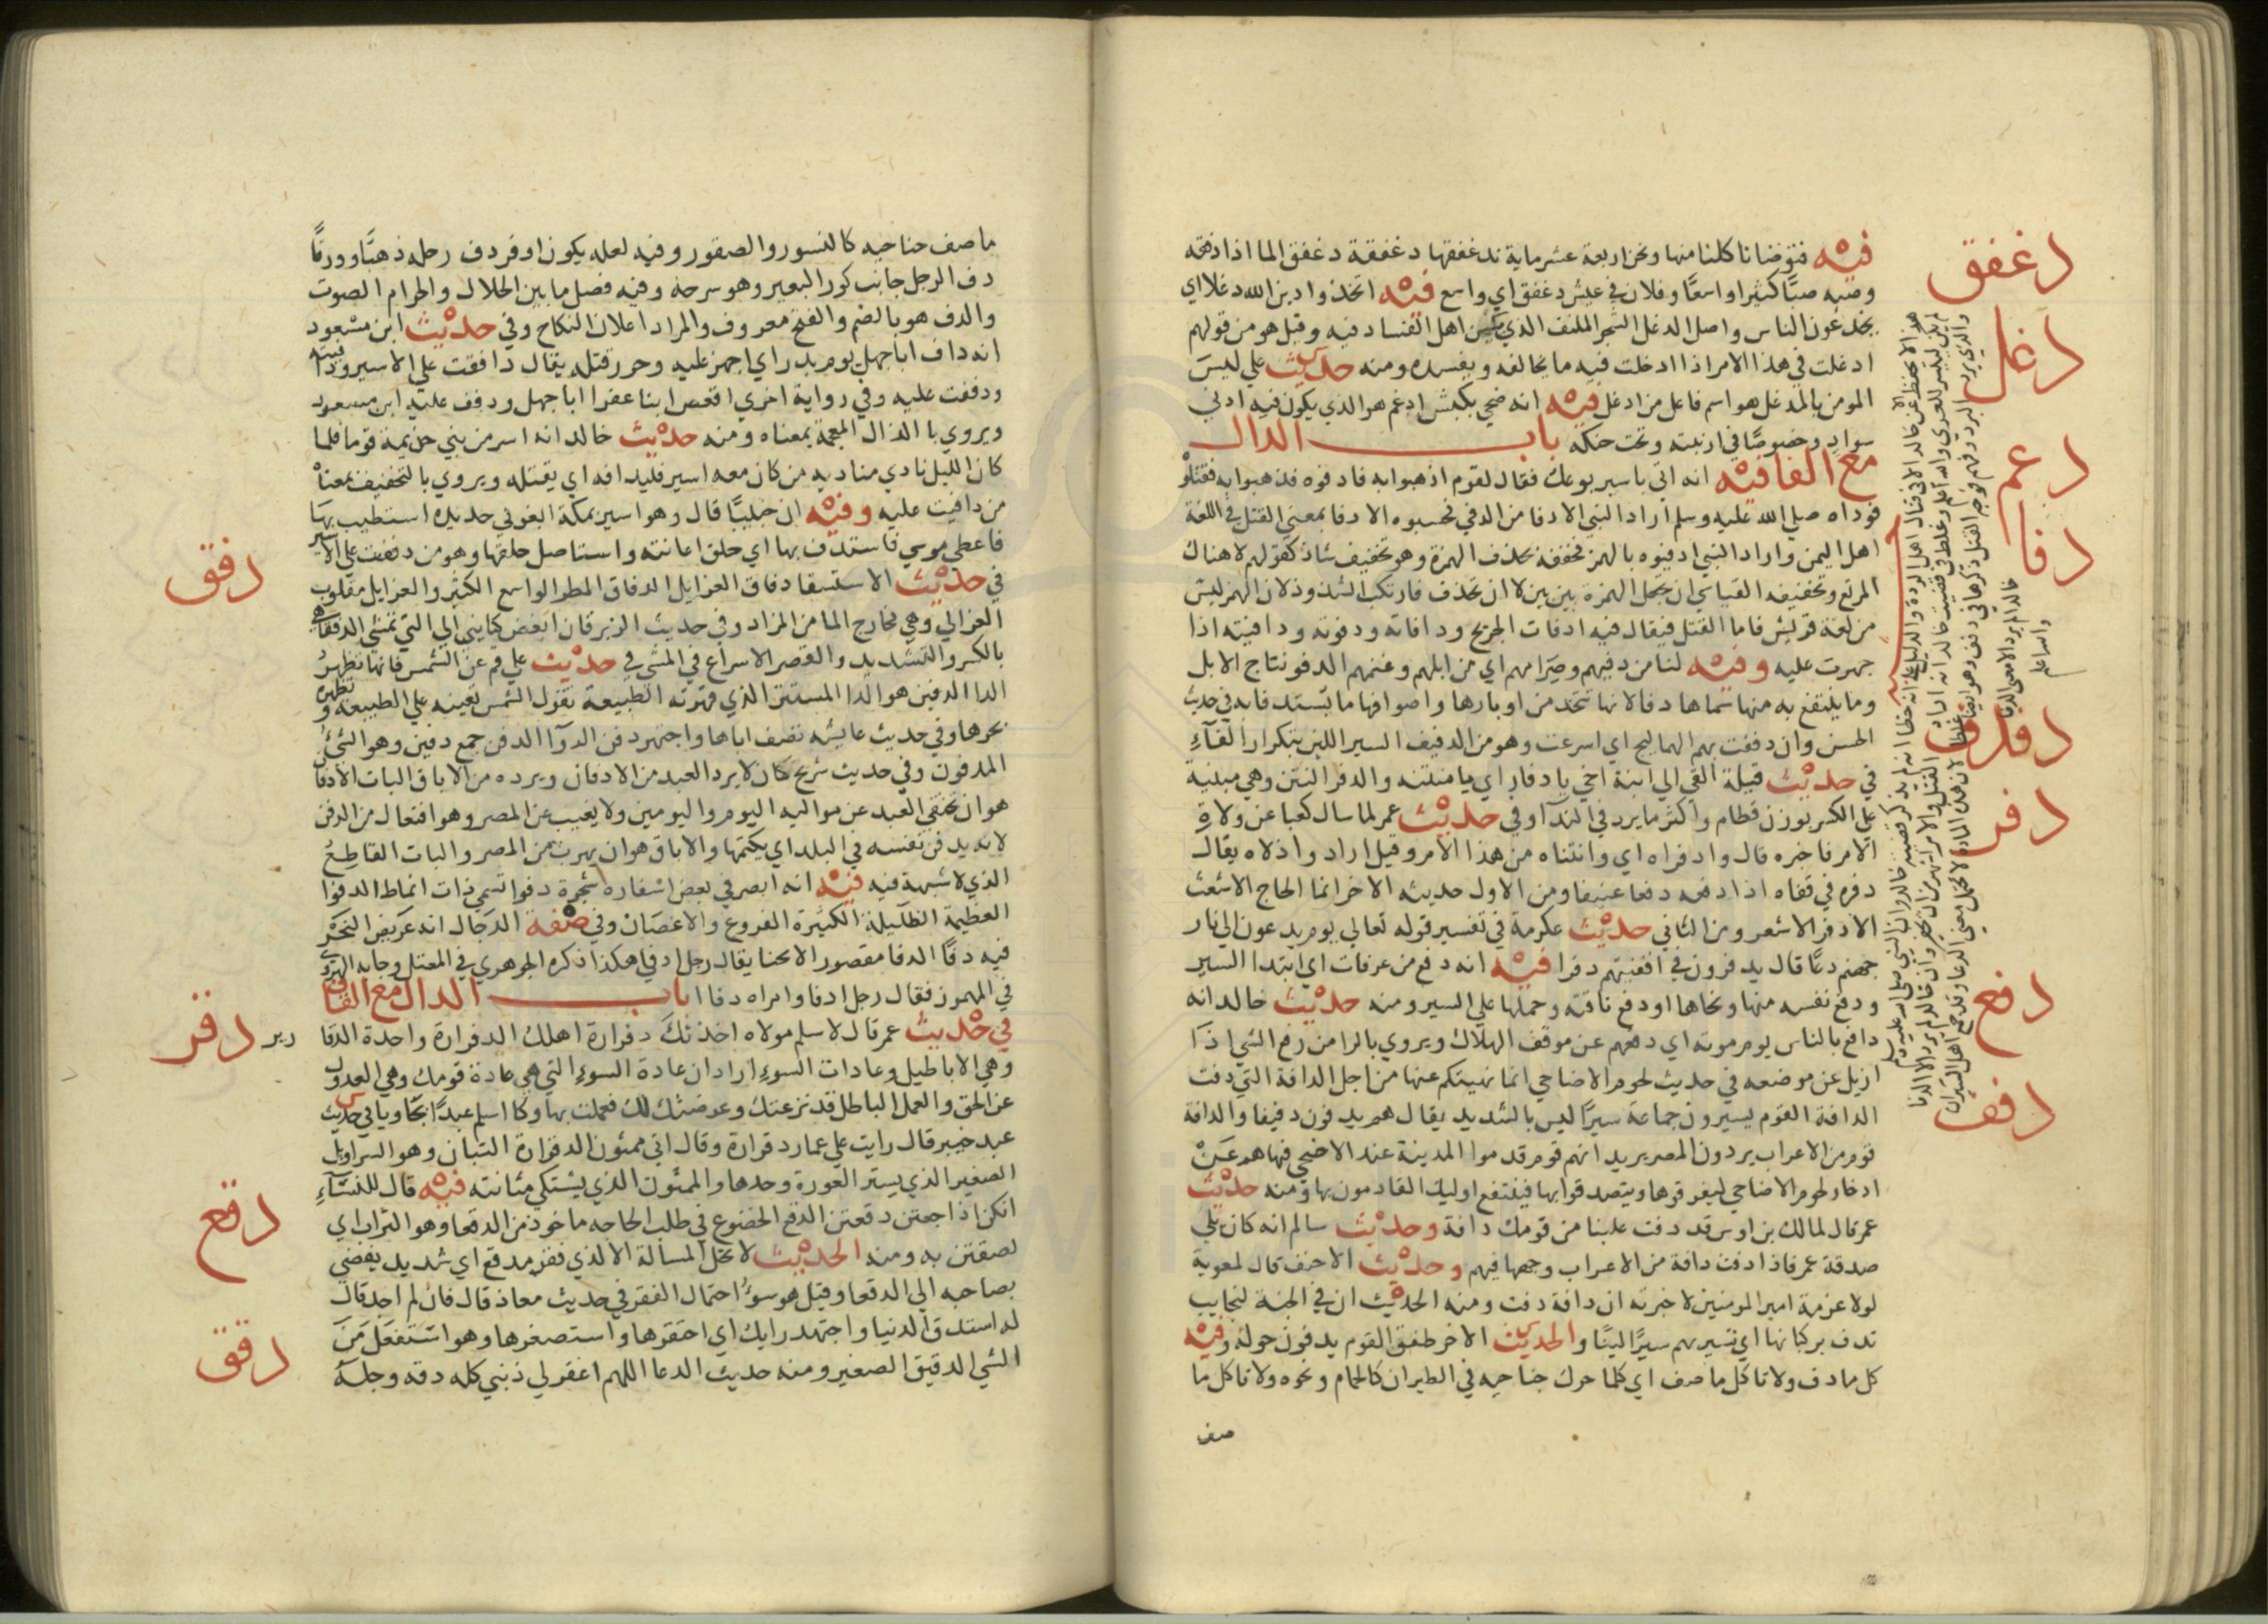 دغفق
فيه فتوضانا كلنا منها ونحن اربعة عشر ماية ندغفقها دغفقة دغفق الما اذا دفقه
وصبه صبًا كثيرا واسعًا وفلان في عيش دغفق اي واسع فيه اتخذوا دين الله دغلا اي
دغل
يخدعون الناس واصل الدغل الشجر الملتف الذي يكمن اهل الفساد فيه وقيل هو من قولهم
ادغلت في هذا الامر اذا ادخلت فيه ما يخالفه ويفسده ومنه حديث علي ليس
المومن بالمدغل هو اسم فاعل من ادغل فيه انه ضحي بكبش ادغم هو الذي يكون فيه ادني
دعم
سواد وخصوصًا في ارنبته وتحت حنكه باب الدال
مع الفا فيه انه اتي باسير يوعك فقال لقوم اذهبوا به فادفوه فذهبوا به فقتلوه
دفا
فوداه صلي الله عليه وسلم اراد النبي الادفا من الدفي فحسبوه الادفا بمعني القتل في اللغة
اهل اليمن واراد النبي ادفيوه بالهمز فخففه بحذف الهمزة وهو تخفيف شاذ كقولهم لاهناك
المرتع وتخفيفه القياسي ان تجعل الهمزة بين بين لا ان تحذف فارتكب الشذوذ لان الهمز ليس
من لغة قريش فاما القتل فيقال فيه ادفات الجريح ودافاته ودفوته ودافيته اذا
جهزت عليه وفيه لنا من دفيهم وصرامهم اي من ابلهم وغنمهم الدفو نتاج الابل
وما ينتفع به منها سماها دفا لانها تتخذ من اوبارها واصوافها ما يستدفا به في حديث
دفدف
الحسن وان دفدفت بهم الهماليج اي اسرعت وهو من الدفيف السير اللين بتكرار الفآء
في حديث قيلة القي الي ابنة اخي يا دفار اي يا منتنه والدفر النتن وهي مبنية
دفر
علي الكسر بوزن قطام واكثر ما يرد في الندآ وفي حديث عمر لما سال كعبا عن ولاة
الامر فاخبره قال وادفراه اي وانتناه من هذا الامر وقيل اراد واذلاه يقال
دفره في قفاه اذا دفعه دفعا عنيفا ومن الاول حديثه الاخر انما الحاج الاشعث
الادفر الاشعر ومن الثاني حديث عكرمة في تفسير قوله تعالي يوم يدعون الي نار
جهنم دعًا قال يدفرون في اقفيتهم دفرا فيه انه دفع من عرفات اي ابتدا السير
دفع
ودفع نفسه منها ونحاها او دفع ناقته وحملها علي السير ومنه حديث خالد انه
دافع بالناس يوم موته اي دفعهم عن موقف الهلاك ويروي بالرا من رفع الشي اذا
ازيل عن موضعه في حديث لحوم الاضاحي انما نهيتكم عنها من اجل الدافة التي دفت
دفف
الدافة القوم يسيرون جماعة سيرًا ليس بالشديد يقال هم يدفون دفيفا والدافة
قوم من الاعراب يردون المصر يريد انهم قوم قدموا المدينة عند الاضحي فنهاهم عن
ادخار لحوم الاضاحي ليفرقوها ويتصدقوا بها فينتفع اوليك القادمون بها ومنه حديث
عمر قال لمالك بن اوس قد دفت علينا من قومك دافة وحديث سالم انه كان يلي
صدقة عمر فاذا دفت دافة من الاعراب وجهها فيهم وحديث الاحنف قال لمعوية
لولا عزمة امير المومنين لاخبرته ان دافة دفت ومنه الحديث ان في الجنة لنجايب
تدف بركبانها اي تسير بهم سيرًا لينًا والحديث الاخر طفق القوم يدفون حوله وفيه
كل ما دف ولا تاكل ما صف اي كلما حرك جناحيه في الطيران كالحمام ونحوه ولا تاكل ما
صف
ما صف جناحيه كالنسور والصقور وفيه لعله يكون اوقر دف رحله ذهبًا وورقًا
دف الرجل جانب كور البعير وهو سرجه وفيه فصل ما بين الحلال والحرام الصوت
والدف هو بالضم والفتح معروف والمراد اعلان النكاح وفي حديث ابن مسعود
انه داف ابا جهل يوم بدر اي اجهز عليه وحرر قتله يقال داففت علي الاسير ودافيته
ودففت عليه وفي رواية اخري اقعص ابنا عفرا ابا جهل ودفف عليه ابن مسعود
ويروي بالذال المعجمة بمعناه ومنه حديث خالد انه اسر من بني جذيمة قوما فلما
كان الليل نادي مناديه من كان معه اسير فليدافه اي يقتله ويروي بالتخفيف بمعناه
من دافيت عليه وفيه ان خبيبًا قال وهو اسير بمكة ابغوني حديدة استطيب بها
فاعطي موسي فاستدف بها اي حلق عانته واستاصل حلقها وهو من دففت علي الاسير
دفق
في حديث الاستسقا دفاق العزايل الدفاق المطر الواسع الكثير والعزايل مقلوب
العزالي وهي مخارج الما من المزاد وفي حديث الزبرقان ابغض كنايني الي التي تمشي الدفقي هي
بالكسر والتشديد والقصر الاسراع في المشي في حديث علي قم عن الشمس فانها تظهر
الدا الدفين هو الدا المستتر الذي قهرته الطبيعة يقول الشمس تعينه علي الطبيعة وتظهره
بحرها وفي حديث عايشه تصف اباها واجتهر دفن الدوآ الدفن جمع دفين وهو الشئ
المدفون وفي حديث شريح كان لا يرد العبد من الادفان ويرده من الاباق البات الادفان
هو ان يختفي العبد عن مواليه اليوم واليومين ولا يغيب عن المصر وهو افتعال من الدفن
لانه يدفن نفسه في البلد اي يكتمها والاباق هو ان يهرب من المصر والبات القاطع
الذي لا شبهة فيه فيه انه ابصر في بعض اسفاره شجرة دفوا تسمي ذات انماط الدفوا
العظيمة الظليلة الكثيرة الفروع والاغصان وفي صفة الدجال انه عريض النحر
فيه دفًا الدفا مقصور الانحنا يقال رجل ادفي هكذا ذكره الجوهري في المعتل وجا به الهروي
في المهموز فقال رجل ادفا وامراه دفا باب الدال مع القاف
دقر
في حديث عمر قال لاسلم مولاه اخذتك دقرارة اهلك الدقرارة واحدة الدقارير
وهي الاباطيل وعادات السوء اراد ان عادة السوء التي هي عادة قومك وهي العدول
عن الحق والعمل الباطل قد نزعتك وعرضت لك فعملت بها وكان اسلم عبدًا بجاويا في حديث
عبد خير قال رايت علي عمار دقرارة وقال اني ممثون الدقرارة التبان وهو السراويل
الصغير الذي يستر العورة وحدها والممثون الذي يشتكي مثانته فيه قال للنسآء
دقع
انكن اذا جعتن دقعتن الدقع الخضوع في طلب الحاجه ماخوذ من الدقعا وهو التراب اي
لصقتن به ومنه الحديث لا تحل المسالة الا لذي فقر مدقع اي شديد يفضي
بصاحبه الي الدقعا وقيل هو سوء احتمال الفقر في حديث معاذ قال فان لم اجد قال
دقق
له استدق الدنيا واجتهد رايك اي احتقرها واستصغرها وهو استفعل من
الشي الدقيق الصغير ومنه حديث الدعا اللهم اغفر لي ذنبي كله دقه وجله